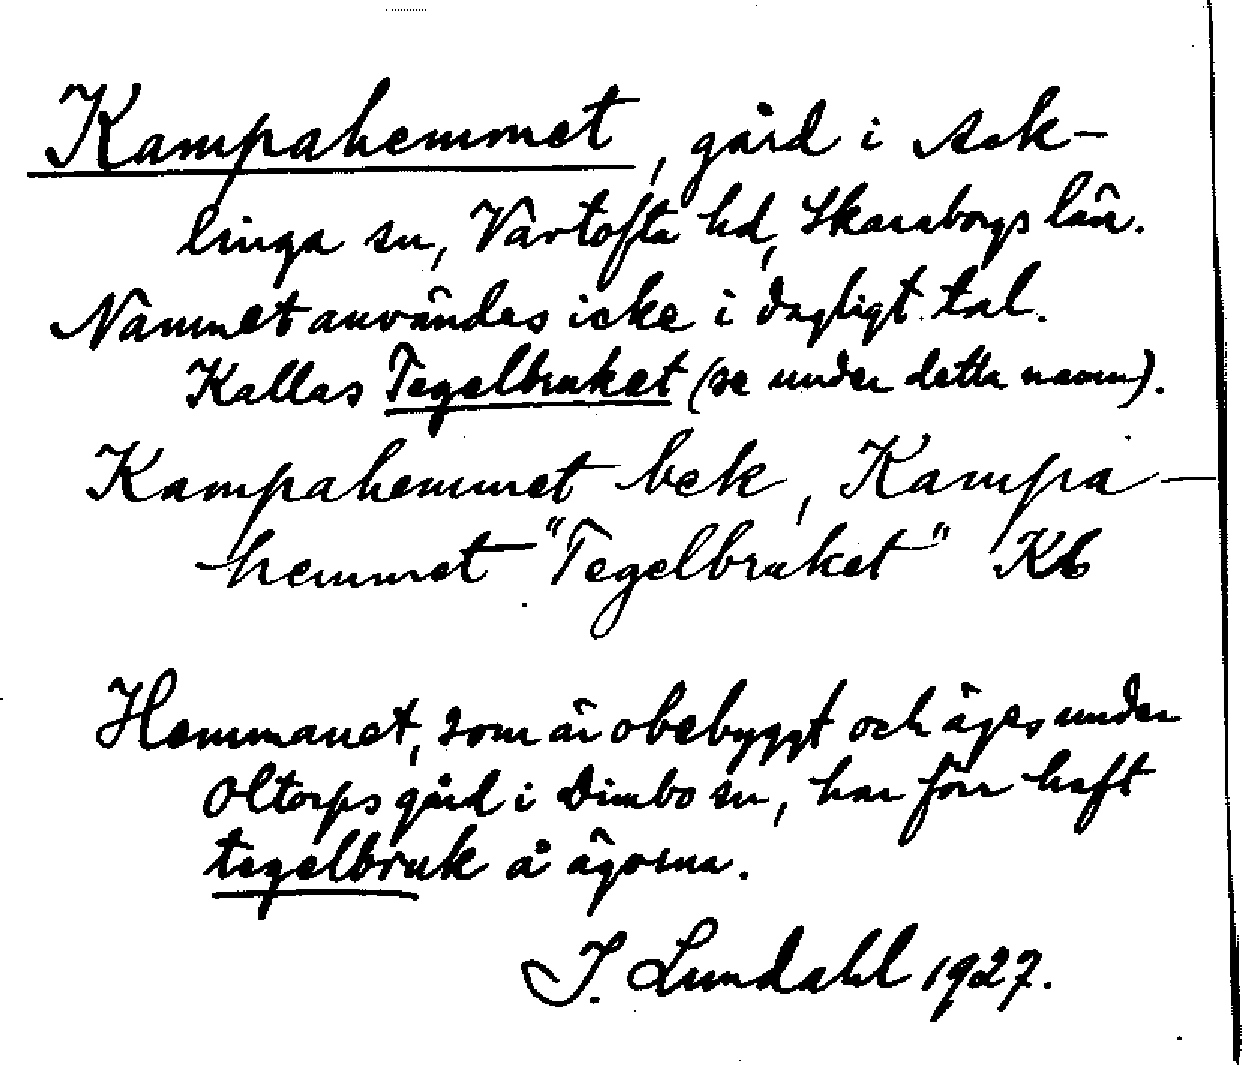 Kampahemmet, gård i Ack-
linga sn, Vartofta hd, Skaraborgs län.
Namnet användes icke i dagligt tal.
Kallas Tegelbruket (se under detta namn).
Kampahemmet bek, Kampa-
hemmet "Tegelbruket" Kb
Hemmanet, som är obebyggt och äges under
Oltorps gård i Dimbo sn, har förr haft
tegelbruk å ägorna.
I. Lundahl 1927.